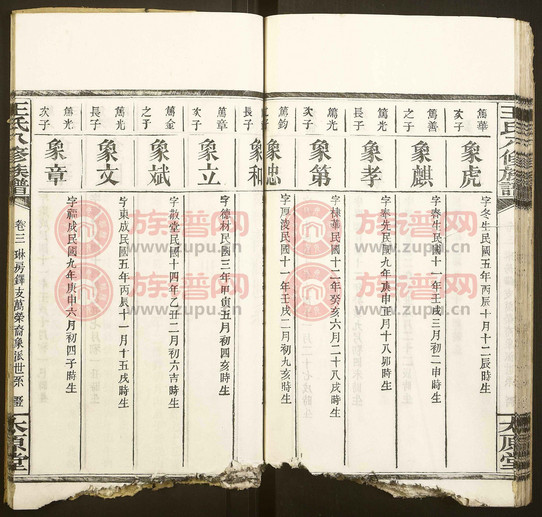 王氏八修族譜
太原堂
篤華
次子
象虎
字冬生民國五年丙辰十月十二辰時生
篤善
之子
象麒
字壽生民國十一年壬戌三月初二申時生
篤光
長子
象孝
字泰先民國九年庚申正月十八卯時生
篤光
次子
象第
字棣華民國十二年癸亥六月二十八戌時生
篤鈞
之子
象忠
民國十一年壬戌二月初九亥時生
長子
象和
篤章
次子
象立
字德材民國三年甲寅五月初四亥時生
篤金
之子
象斌
字敬堂民國十四年乙丑二月初六吉時生
篤光
長子
象文
字東成民國五年丙辰十一月十五戌時生
篤光
次子
象章
字福成民國九年庚申六月初四子時生
王氏八修族譜
卷三
琳房鐸支萬榮裔象派世系
太原堂
族谱网
www.zupu.cn